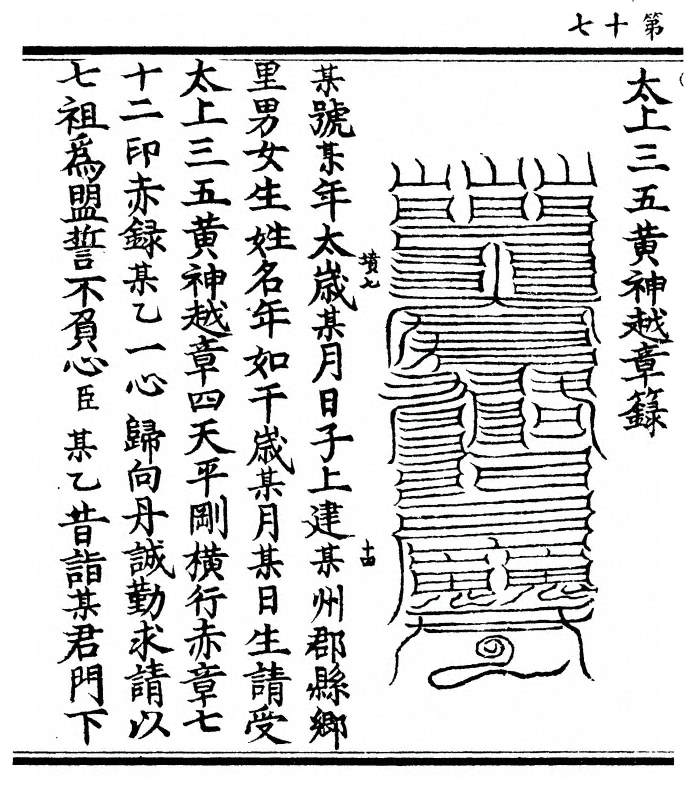 第十七
太上三五黃神越章籙
某號某年太歲某月日子上建某州郡縣鄉
墳七
十四
里男女生姓名年如干歲某月某日生請受
太上三五黃神越章四天平剛橫行赤章七
十二印赤録某乙一心歸向丹誠勤求請以
七祖爲盟誓不負心臣某乙昔詣某君門下